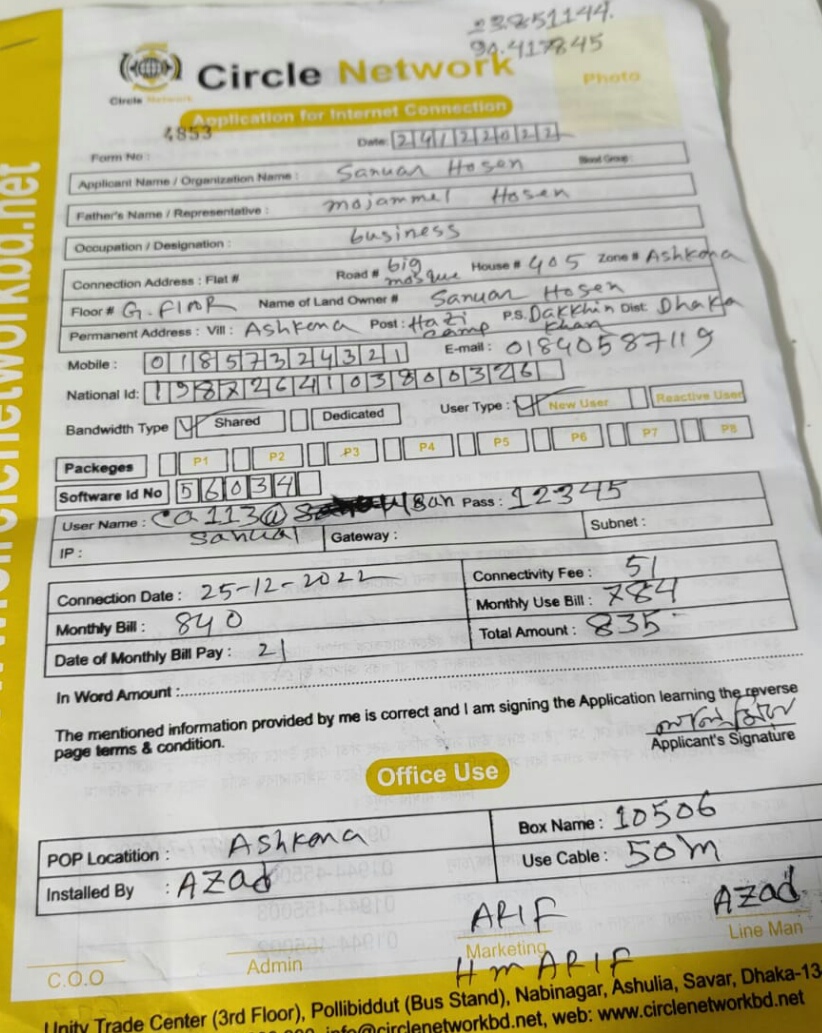 23.851144.
90.417845
Circle Network
Circle Network
Photo
Application for Internet Connection
4853
Form No :
Date: 24122022
Applicant Name / Organization Name : Sanuar Hosen Blood Group :
Father's Name / Representative : mojammel Hosen
Occupation / Designation : business
Connection Address : Flat # Road # big mosque House # 405 Zone # Ashkona
Floor # G. Floor Name of Land Owner # Sanuar Hosen
Permanent Address : Vill : Ashkona Post : Hazi camp P.S. Dakkhin khan Dist: Dhaka
Mobile : 01857324321 E-mail : 01840587119
National Id: 19872641038000326
Bandwidth Type Shared Dedicated User Type : New User Reactive User
Packeges P1 P2 P3 P4 P5 P6 P7 P8
Software Id No 56034
User Name : ca113@ Pass : 12345
IP : Gateway : Subnet :
Connection Date : 25-12-2022 Connectivity Fee : 51
Monthly Bill : 840 Monthly Use Bill : 784
Date of Monthly Bill Pay : 21 Total Amount : 835
In Word Amount :
The mentioned information provided by me is correct and I am signing the Application learning the reverse
page terms & condition.
Applicant's Signature
Office Use
POP Locatition : Ashkona Box Name : 10506
Installed By : AZad Use Cable : 50m
ARIF AZad
C.O.O Admin Marketing Line Man
H m ARIF
Unity Trade Center (3rd Floor), Pollibiddut (Bus Stand), Nabinagar, Ashulia, Savar, Dhaka-13
info@circlenetworkbd.net, web: www.circlenetworkbd.net